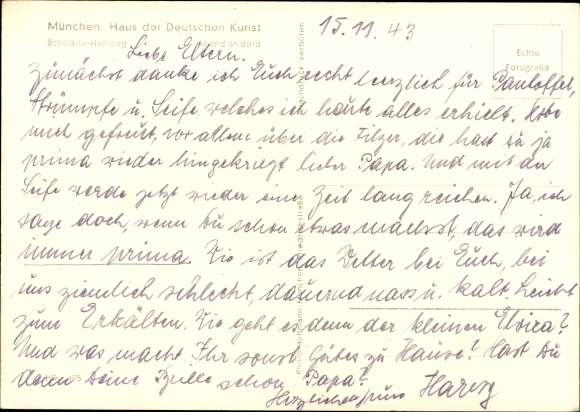 München: Haus der Deutschen Kunst
15.11.43
Schwarte-Hellweg
Abend an Bord
Echte
Fotografie
Liebe Eltern.
Zunächst danke ich Euch recht herzlich für Pantoffel,
Strümpfe u. Seife, welches ich heute alles erhielt. Habe
mich gefreut, vor allem über die Filzer, die hast Du ja
prima wieder hingekriegt lieber Papa. Und mit der
Seife werde jetzt wieder eine Zeit lang reichen. Ja, ich
sage doch, wenn Du schon etwas machst, das wird
immer prima. Wie ist das Wetter bei Euch, bei
uns ziemlich schlecht, dauernd nass u. kalt. Leicht
zum Erkälten. Wie geht es denn der kleinen Elvira?
Und was macht Ihr sonst Gutes zu Hause? Hast Du
denn Deine Brille schon Papa?
Herzlichen Gruss